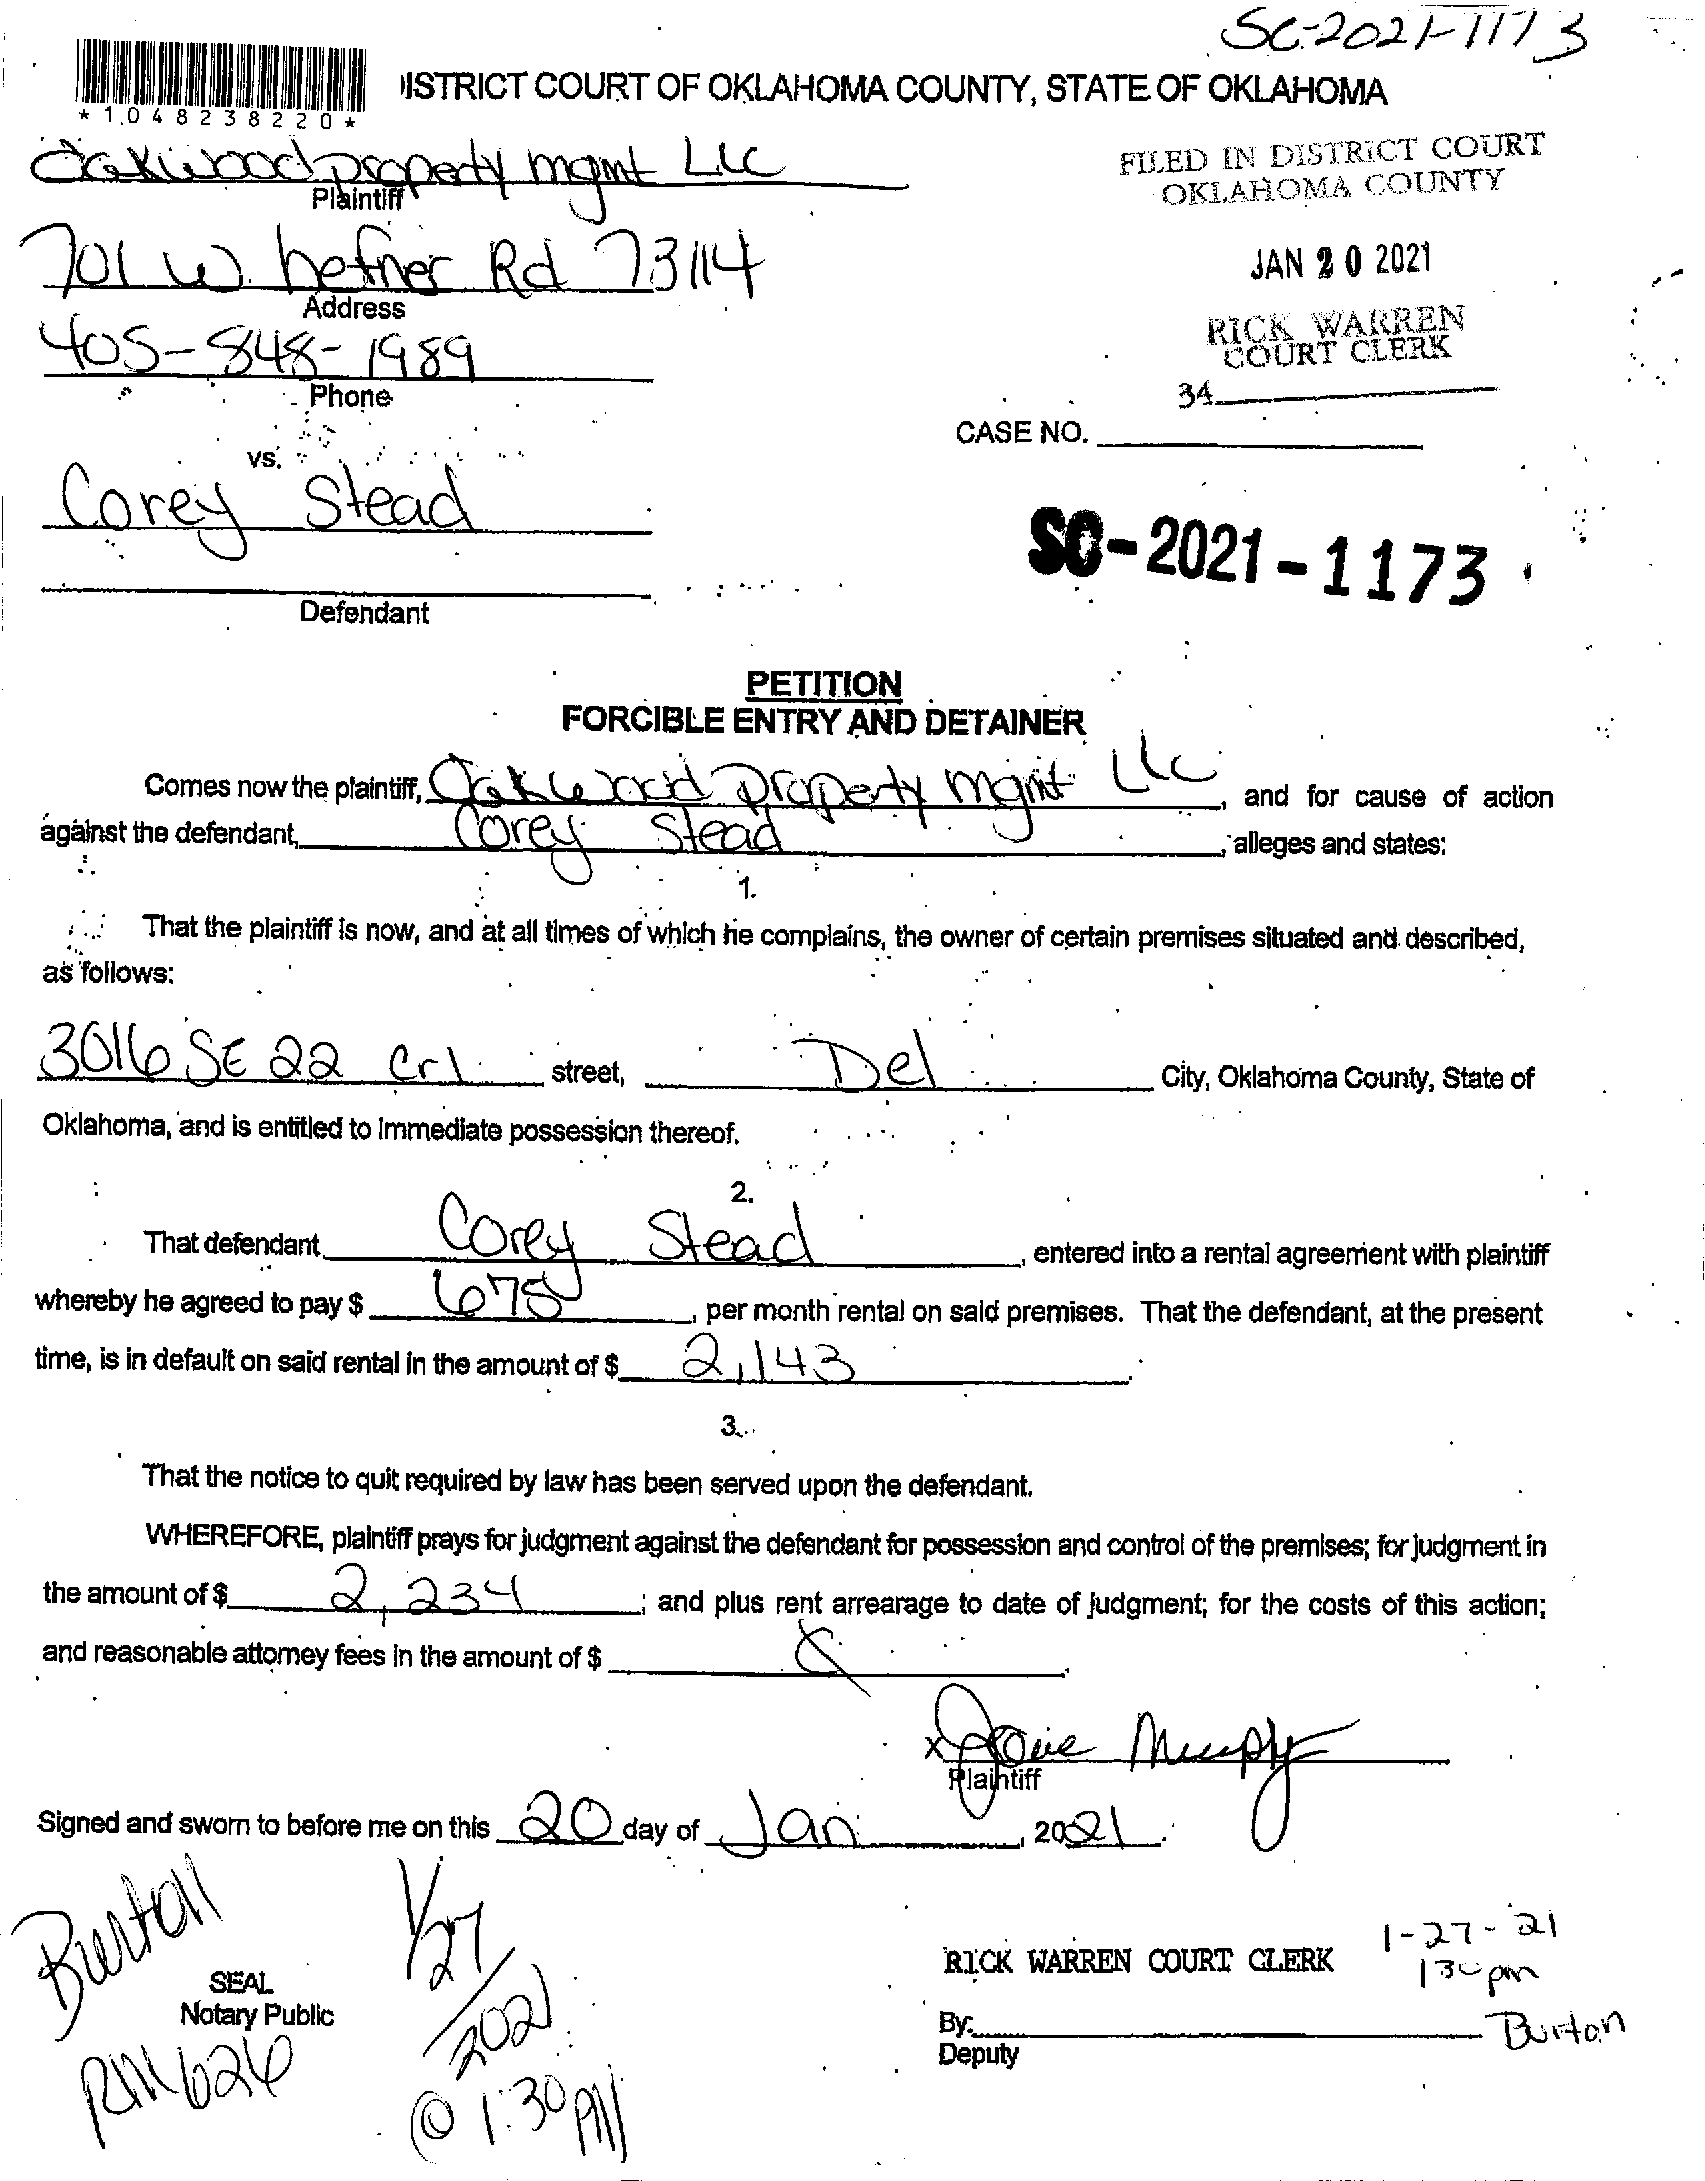 SC-2021-1173
ISTRICT COURT OF OKLAHOMA COUNTY, STATE OF OKLAHOMA
* 1 0 4 8 2 3 8 2 2 0 *
Oakwood property mgmt LLC
Plaintiff
FILED IN DISTRICT COURT
OKLAHOMA COUNTY
701 W. hefner Rd 73114
Address
JAN 20 2021
405-848-1989
Phone
RICK WARREN
COURT CLERK
34
CASE NO.
vs.
Corey Stead
SC-2021-1173
Defendant
PETITION
FORCIBLE ENTRY AND DETAINER
Comes now the plaintiff, Oakwood property mgmt LLC, and for cause of action
against the defendant, Corey Stead, alleges and states:
1.
That the plaintiff is now, and at all times of which he complains, the owner of certain premises situated and described,
as follows:
3016 SE 22 Crl street, Del City, Oklahoma County, State of
Oklahoma, and is entitled to immediate possession thereof.
2.
That defendant Corey Stead, entered into a rental agreement with plaintiff
whereby he agreed to pay $ 675, per month rental on said premises. That the defendant, at the present
time, is in default on said rental in the amount of $ 2,143.
3.
That the notice to quit required by law has been served upon the defendant.
WHEREFORE, plaintiff prays for judgment against the defendant for possession and control of the premises; for judgment in
the amount of $ 2,234; and plus rent arrearage to date of judgment; for the costs of this action;
and reasonable attorney fees in the amount of $
x Murphy
Plaintiff
Signed and sworn to before me on this 20 day of Jan, 2021.
Burton
1/27/2021
@ 1:30 PM
SEAL
Notary Public
RM 626
RICK WARREN COURT CLERK
1-27-21
130 pm
By: Burton
Deputy